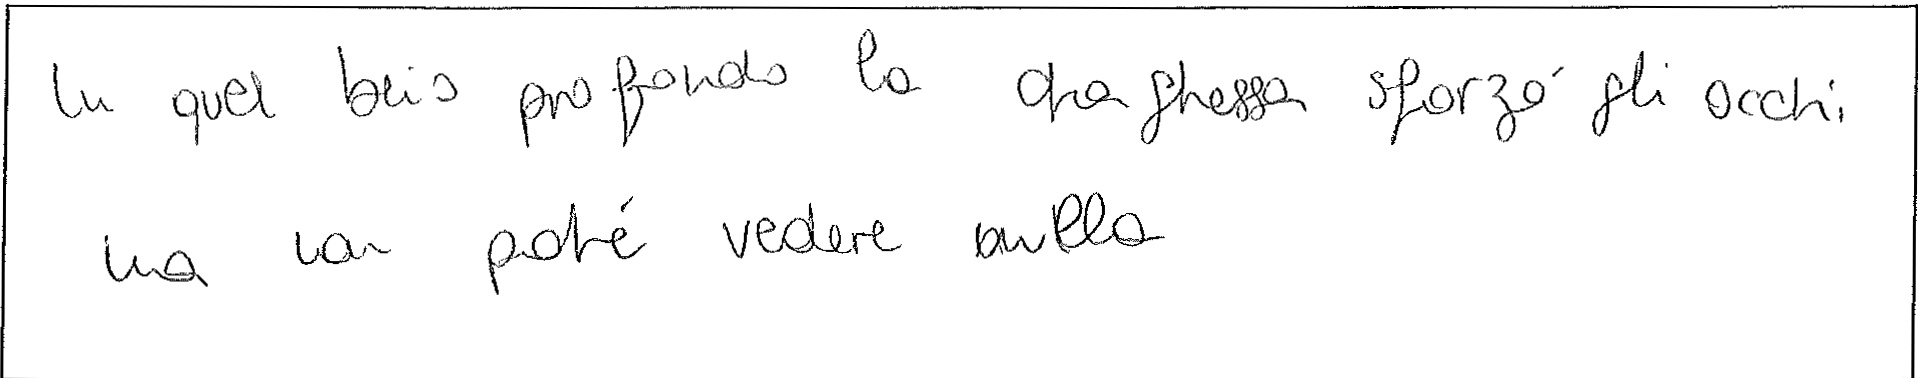 In quel buio profondo la draghessa sforzó gli occhi,
ma non poté vedere nulla